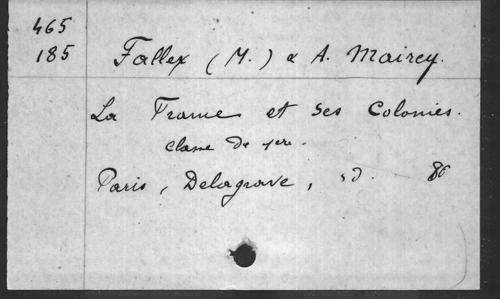 465
185
Fallex (M.) & A. Mairey.
La France et ses Colonies.
classe de 1ere.
Paris, Delagrave, sd. 8°